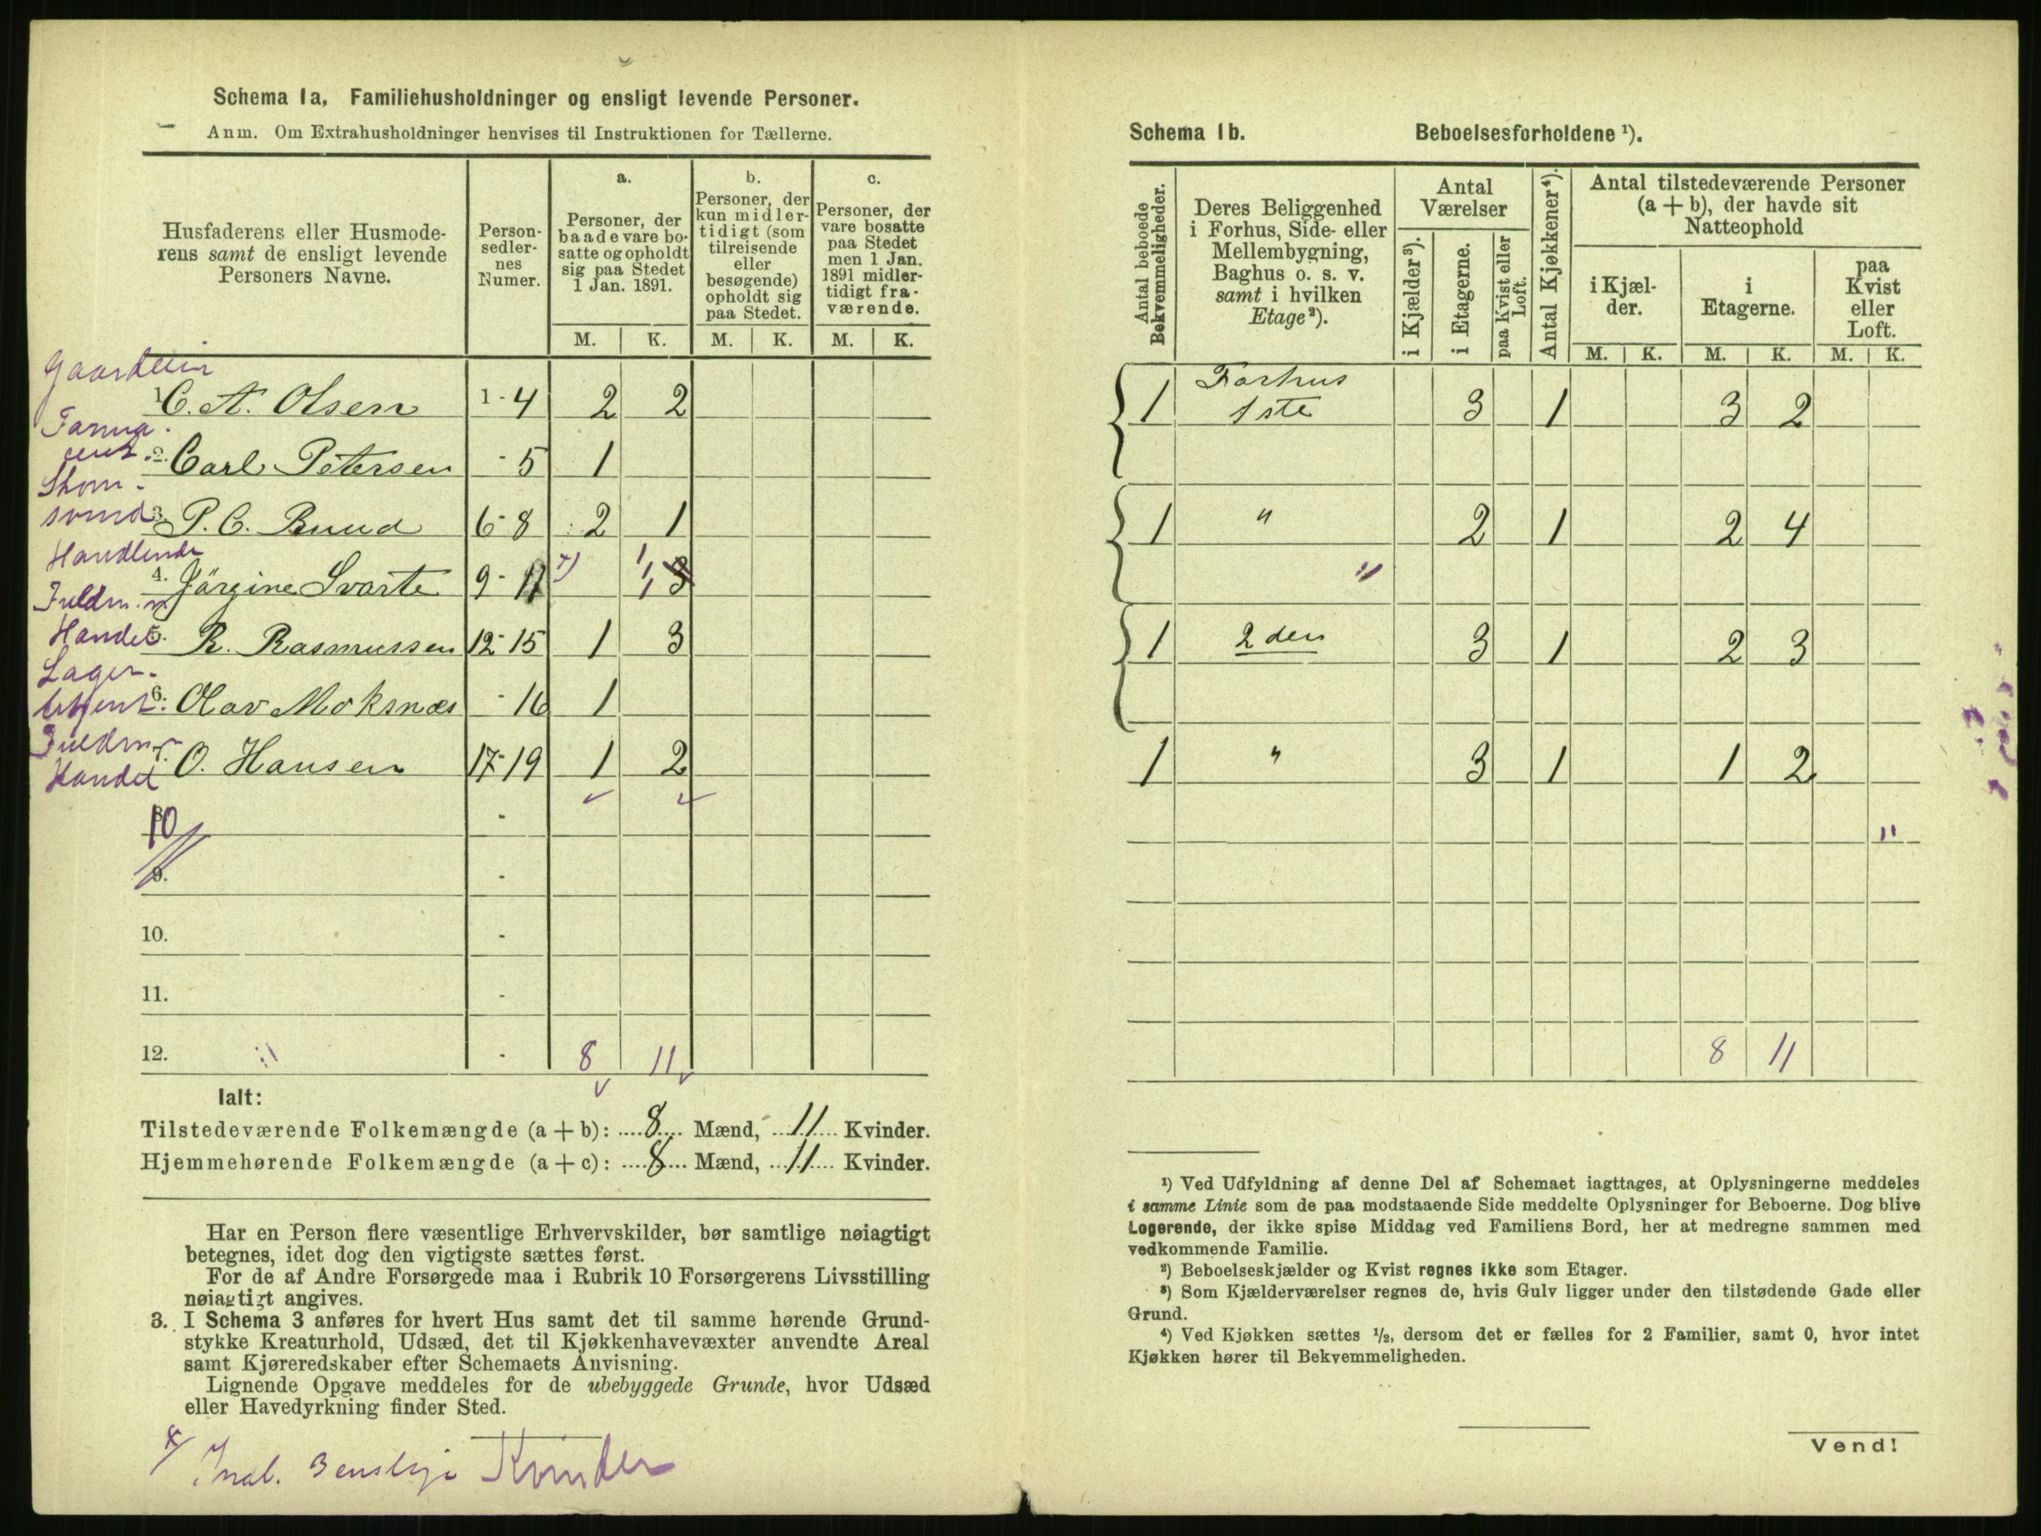 Schema 1a, Familiehusholdninger og ensligt levende Personer.
Anm. Om Extrahusholdninger henvises til Instruktionen for Tællerne.
Husfaderens eller Husmode-
rens samt de ensligt levende
Personers Navne.
Person-
sedler-
nes
Numer.
a.
Personer, der
baade vare bo-
satte og opholdt
sig paa Stedet
1 Jan. 1891.
b.
Personer, der
kun midler-
tidigt (som
tilreisende
eller
besøgende)
opholdt sig
paa Stedet.
c.
Personer, der
vare bosatte
paa Stedet
men 1 Jan.
1891 midler-
tidigt fra-
værende.
M. K. M. K. M. K.
1. C. A. Olsen 1 - 4 2 2
2. Carl Petersen - 5 1
3. P. C. Buud 6 - 8 2 1
Handlende
4. Jörgine Svarte 9 - 11 3
Fuldm.
Handel
5. R. Rasmussen 12 - 15 1 3
Lager-
6. Olav Moksnæs - 16 1
Fuldm
Handel
7. O. Hansen 17 - 19 1 2
10
8. -
9. -
10. -
11. -
12. - 8 11
Ialt:
Tilstedeværende Folkemængde (a + b): 8 Mænd, 11 Kvinder.
Hjemmehørende Folkemængde (a + c): 8 Mænd, 11 Kvinder.
Har en Person flere væsentlige Erhvervskilder, bør samtlige nøiagtigt
betegnes, idet dog den vigtigste sættes først.
For de af Andre Forsørgede maa i Rubrik 10 Forsørgerens Livsstilling
nøiagtigt angives.
3. I Schema 3 anføres for hvert Hus samt det til samme hørende Grund-
stykke Kreaturhold, Udsæd, det til Kjøkkenhavevæxter anvendte Areal
samt Kjøreredskaber efter Schemaets Anvisning.
Lignende Opgave meddeles for de ubebyggede Grunde, hvor Udsæd
eller Havedyrkning finder Sted.
Kvinder
Schema 1b. Beboelsesforholdene ¹).
Antal beboede
Bekvemmeligheder.
Deres Beliggenhed
i Forhus, Side- eller
Mellembygning,
Baghus o. s. v.
samt i hvilken
Etage²).
Antal
Værelser
i Kjælder³).
i Etagerne.
paa Kvist eller
Loft.
Antal Kjøkkener⁴).
Antal tilstedeværende Personer
(a + b), der havde sit
Natteophold
i Kjæl-
der.
i
Etagerne.
paa
Kvist
eller
Loft.
M. K. M. K. M. K.
1 Forhus
1ste 3 1 3 2
1 " 2 1 2 4
1 2den 3 1 2 3
1 " 3 1 1 2
8 11
¹) Ved Udfyldning af denne Del af Schemaet iagttages, at Oplysningerne meddeles
i samme Linie som de paa modstaaende Side meddelte Oplysninger for Beboerne. Dog blive
Logerende, der ikke spise Middag ved Familiens Bord, her at medregne sammen med
vedkommende Familie.
²) Beboelseskjælder og Kvist regnes ikke som Etager.
³) Som Kjælderværelser regnes de, hvis Gulv ligger under den tilstødende Gade eller
Grund.
⁴) Ved Kjøkken sættes ½, dersom det er fælles for 2 Familier, samt 0, hvor intet
Kjøkken hører til Bekvemmeligheden.
Vend!